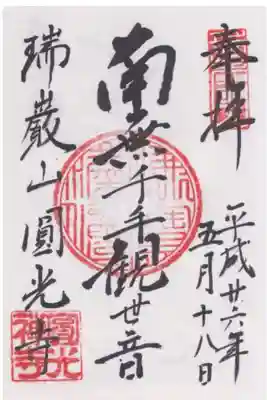 奉拝
平成廿六年
五月十八日
南無千手観世音
瑞巌山圓光寺